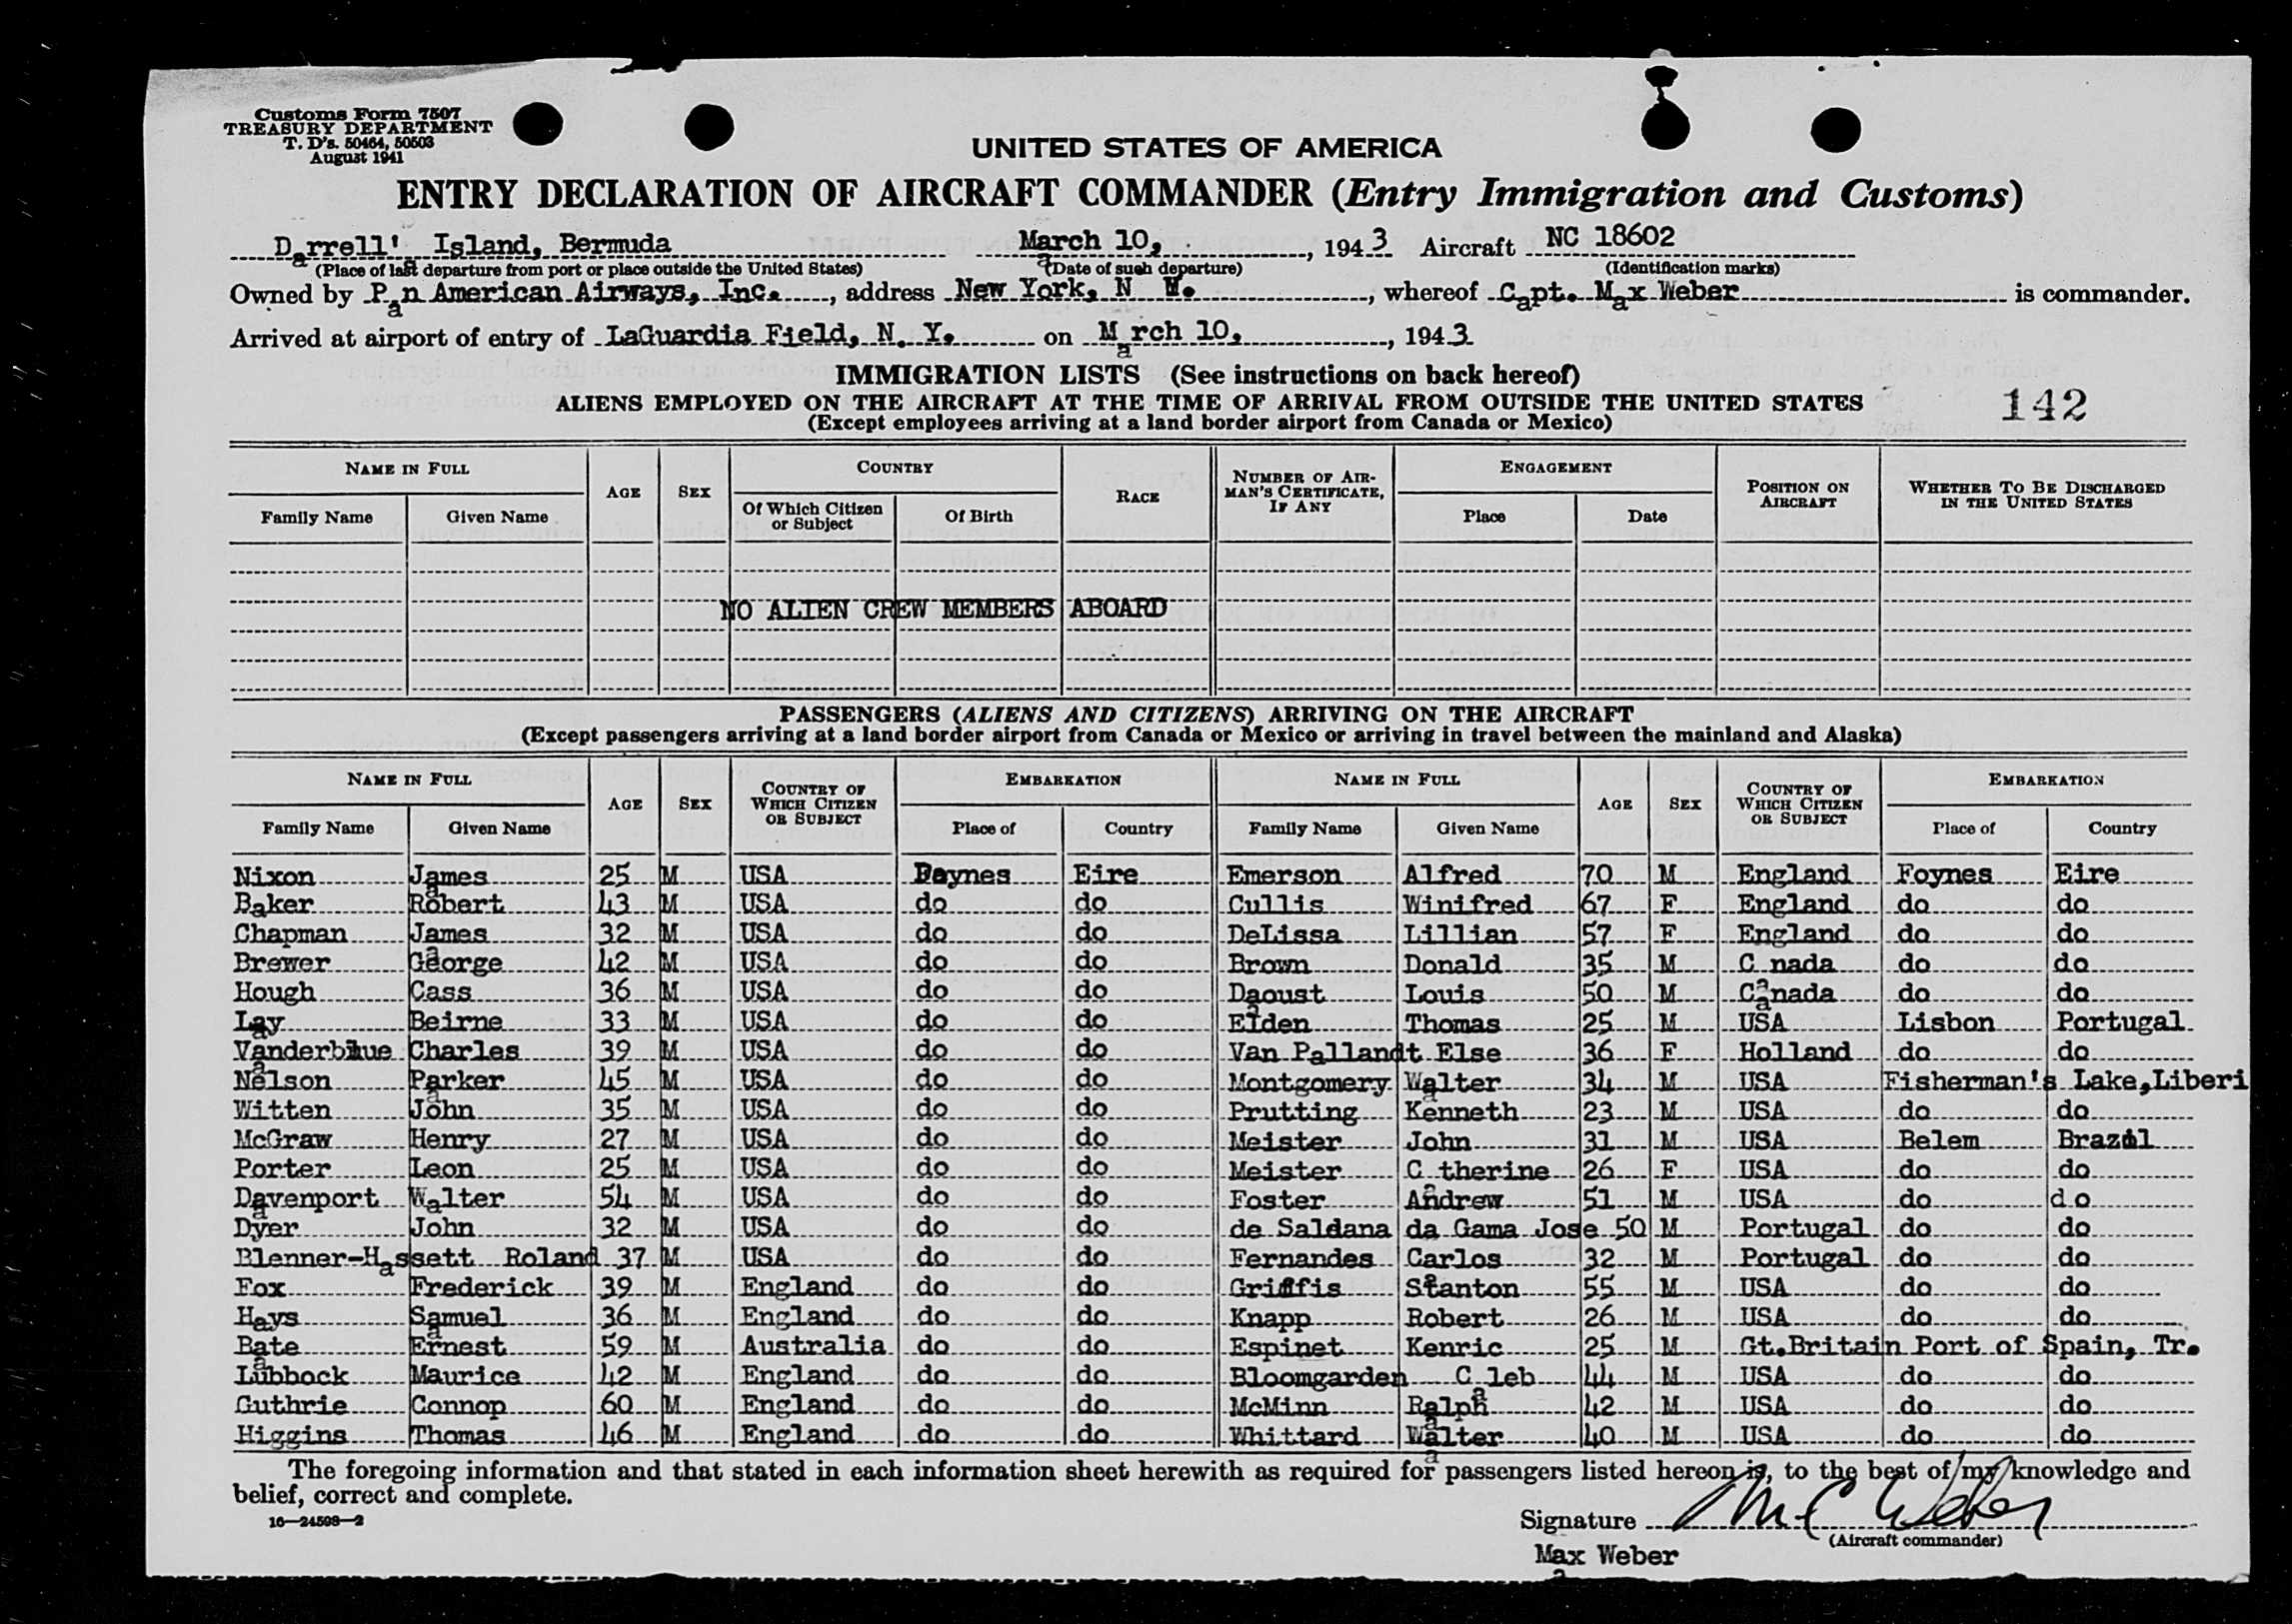 Customs Form 7507
TREASURY DEPARTMENT
T. D's. 50464, 50503
August 1941
UNITED STATES OF AMERICA
ENTRY DECLARATION OF AIRCRAFT COMMANDER (Entry Immigration and Customs)
Darrell' Island, Bermuda March 10, , 1943 Aircraft NC 18602
(Place of last departure from port or place outside the United States) (Date of such departure) (Identification marks)
Owned by Pan American Airways, Inc. , address New York, N Y. , whereof Capt. Max Weber is commander.
Arrived at airport of entry of LaGuardia Field, N. Y. on March 10, , 1943
IMMIGRATION LISTS (See instructions on back hereof)
ALIENS EMPLOYED ON THE AIRCRAFT AT THE TIME OF ARRIVAL FROM OUTSIDE THE UNITED STATES 142
(Except employees arriving at a land border airport from Canada or Mexico)
NAME IN FULL AGE SEX COUNTRY RACE NUMBER OF AIRMAN'S CERTIFICATE, IF ANY ENGAGEMENT POSITION ON AIRCRAFT WHETHER TO BE DISCHARGED IN THE UNITED STATES
Family Name Given Name Of Which Citizen or Subject Of Birth Place Date
NO ALIEN CREW MEMBERS ABOARD
PASSENGERS (ALIENS AND CITIZENS) ARRIVING ON THE AIRCRAFT
(Except passengers arriving at a land border airport from Canada or Mexico or arriving in travel between the mainland and Alaska)
NAME IN FULL AGE SEX COUNTRY OF WHICH CITIZEN OR SUBJECT EMBARKATION NAME IN FULL AGE SEX COUNTRY OF WHICH CITIZEN OR SUBJECT EMBARKATION
Family Name Given Name Place of Country Family Name Given Name Place of Country
Nixon James 25 M USA Foynes Eire Emerson Alfred 70 M England Foynes Eire
Baker Robert 43 M USA do do Cullis Winifred 67 F England do do
Chapman James 32 M USA do do DeLissa Lillian 57 F England do do
Brewer George 42 M USA do do Brown Donald 35 M Canada do do
Hough Cass 36 M USA do do Daoust Louis 50 M Canada do do
Lay Beirne 33 M USA do do Elden Thomas 25 M USA Lisbon Portugal
Vanderblue Charles 39 M USA do do Van Pallandt Else 36 F Holland do do
Nelson Parker 45 M USA do do Montgomery Walter 34 M USA Fisherman's Lake,Liberi
Witten John 35 M USA do do Prutting Kenneth 23 M USA do do
McGraw Henry 27 M USA do do Meister John 31 M USA Belem Brazil
Porter Leon 25 M USA do do Meister Catherine 26 F USA do do
Davenport Walter 54 M USA do do Foster Andrew 51 M USA do do
Dyer John 32 M USA do do de Saldana da Gama Jose 50 M Portugal do do
Blenner-Hassett Roland 37 M USA do do Fernandes Carlos 32 M Portugal do do
Fox Frederick 39 M England do do Griffis Stanton 55 M USA do do
Hays Samuel 36 M England do do Knapp Robert 26 M USA do do
Bate Ernest 59 M Australia do do Espinet Kenric 25 M Gt.Britain Port of Spain, Tr.
Lubbock Maurice 42 M England do do Bloomgarden Caleb 44 M USA do do
Guthrie Connop 60 M England do do McMinn Ralph 42 M USA do do
Higgins Thomas 46 M England do do Whittard Walter 40 M USA do do
The foregoing information and that stated in each information sheet herewith as required for passengers listed hereon is, to the best of my knowledge and
belief, correct and complete.
16—24598—2
Signature M C Weber
(Aircraft commander)
Max Weber